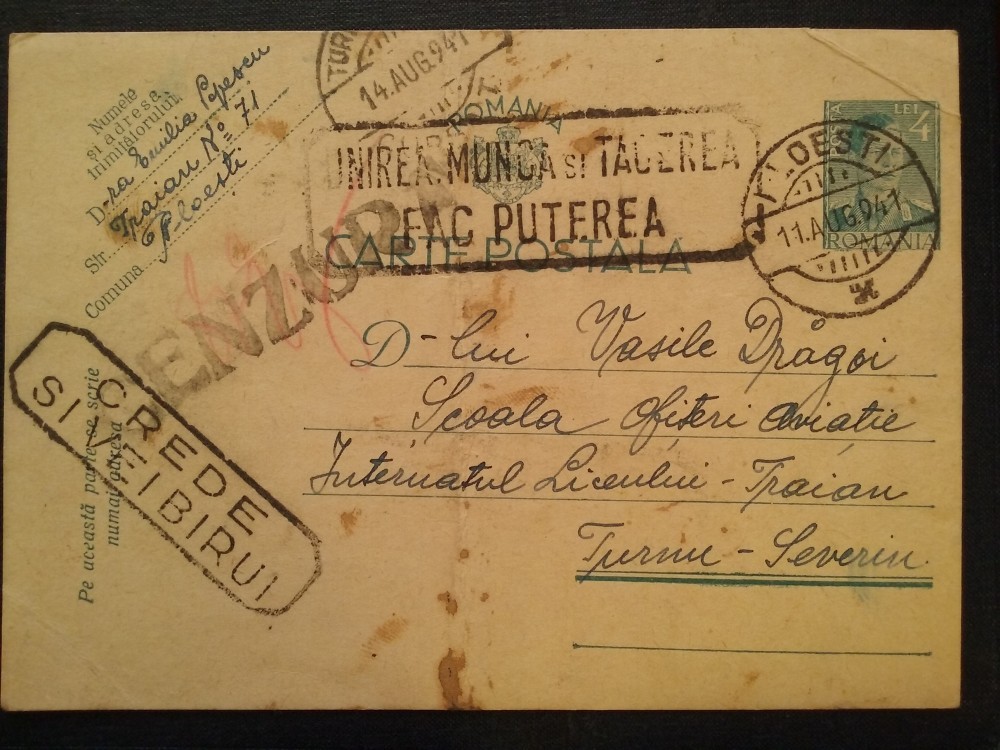 Numele
și adresa
trimițătorului
D-ra Emilia Popescu
Str. Traian No 71
Comuna Ploesti
Pe această parte se scrie
numai adresa
TUR
14.AUG.941
ROMANIA
UNIREA, MUNCA SI TACEREA
FAC PUTEREA
CARTE POSTALA
CENZURAT
CREDE
SI VEI BIRUI
LEI 4
ROMANIA
PLOESTI
11.AUG.941
D-lui Vasile Drågoi
Scoala Ofiteri Aviatie
Internatul Liceului - Traian
Turnu - Severin